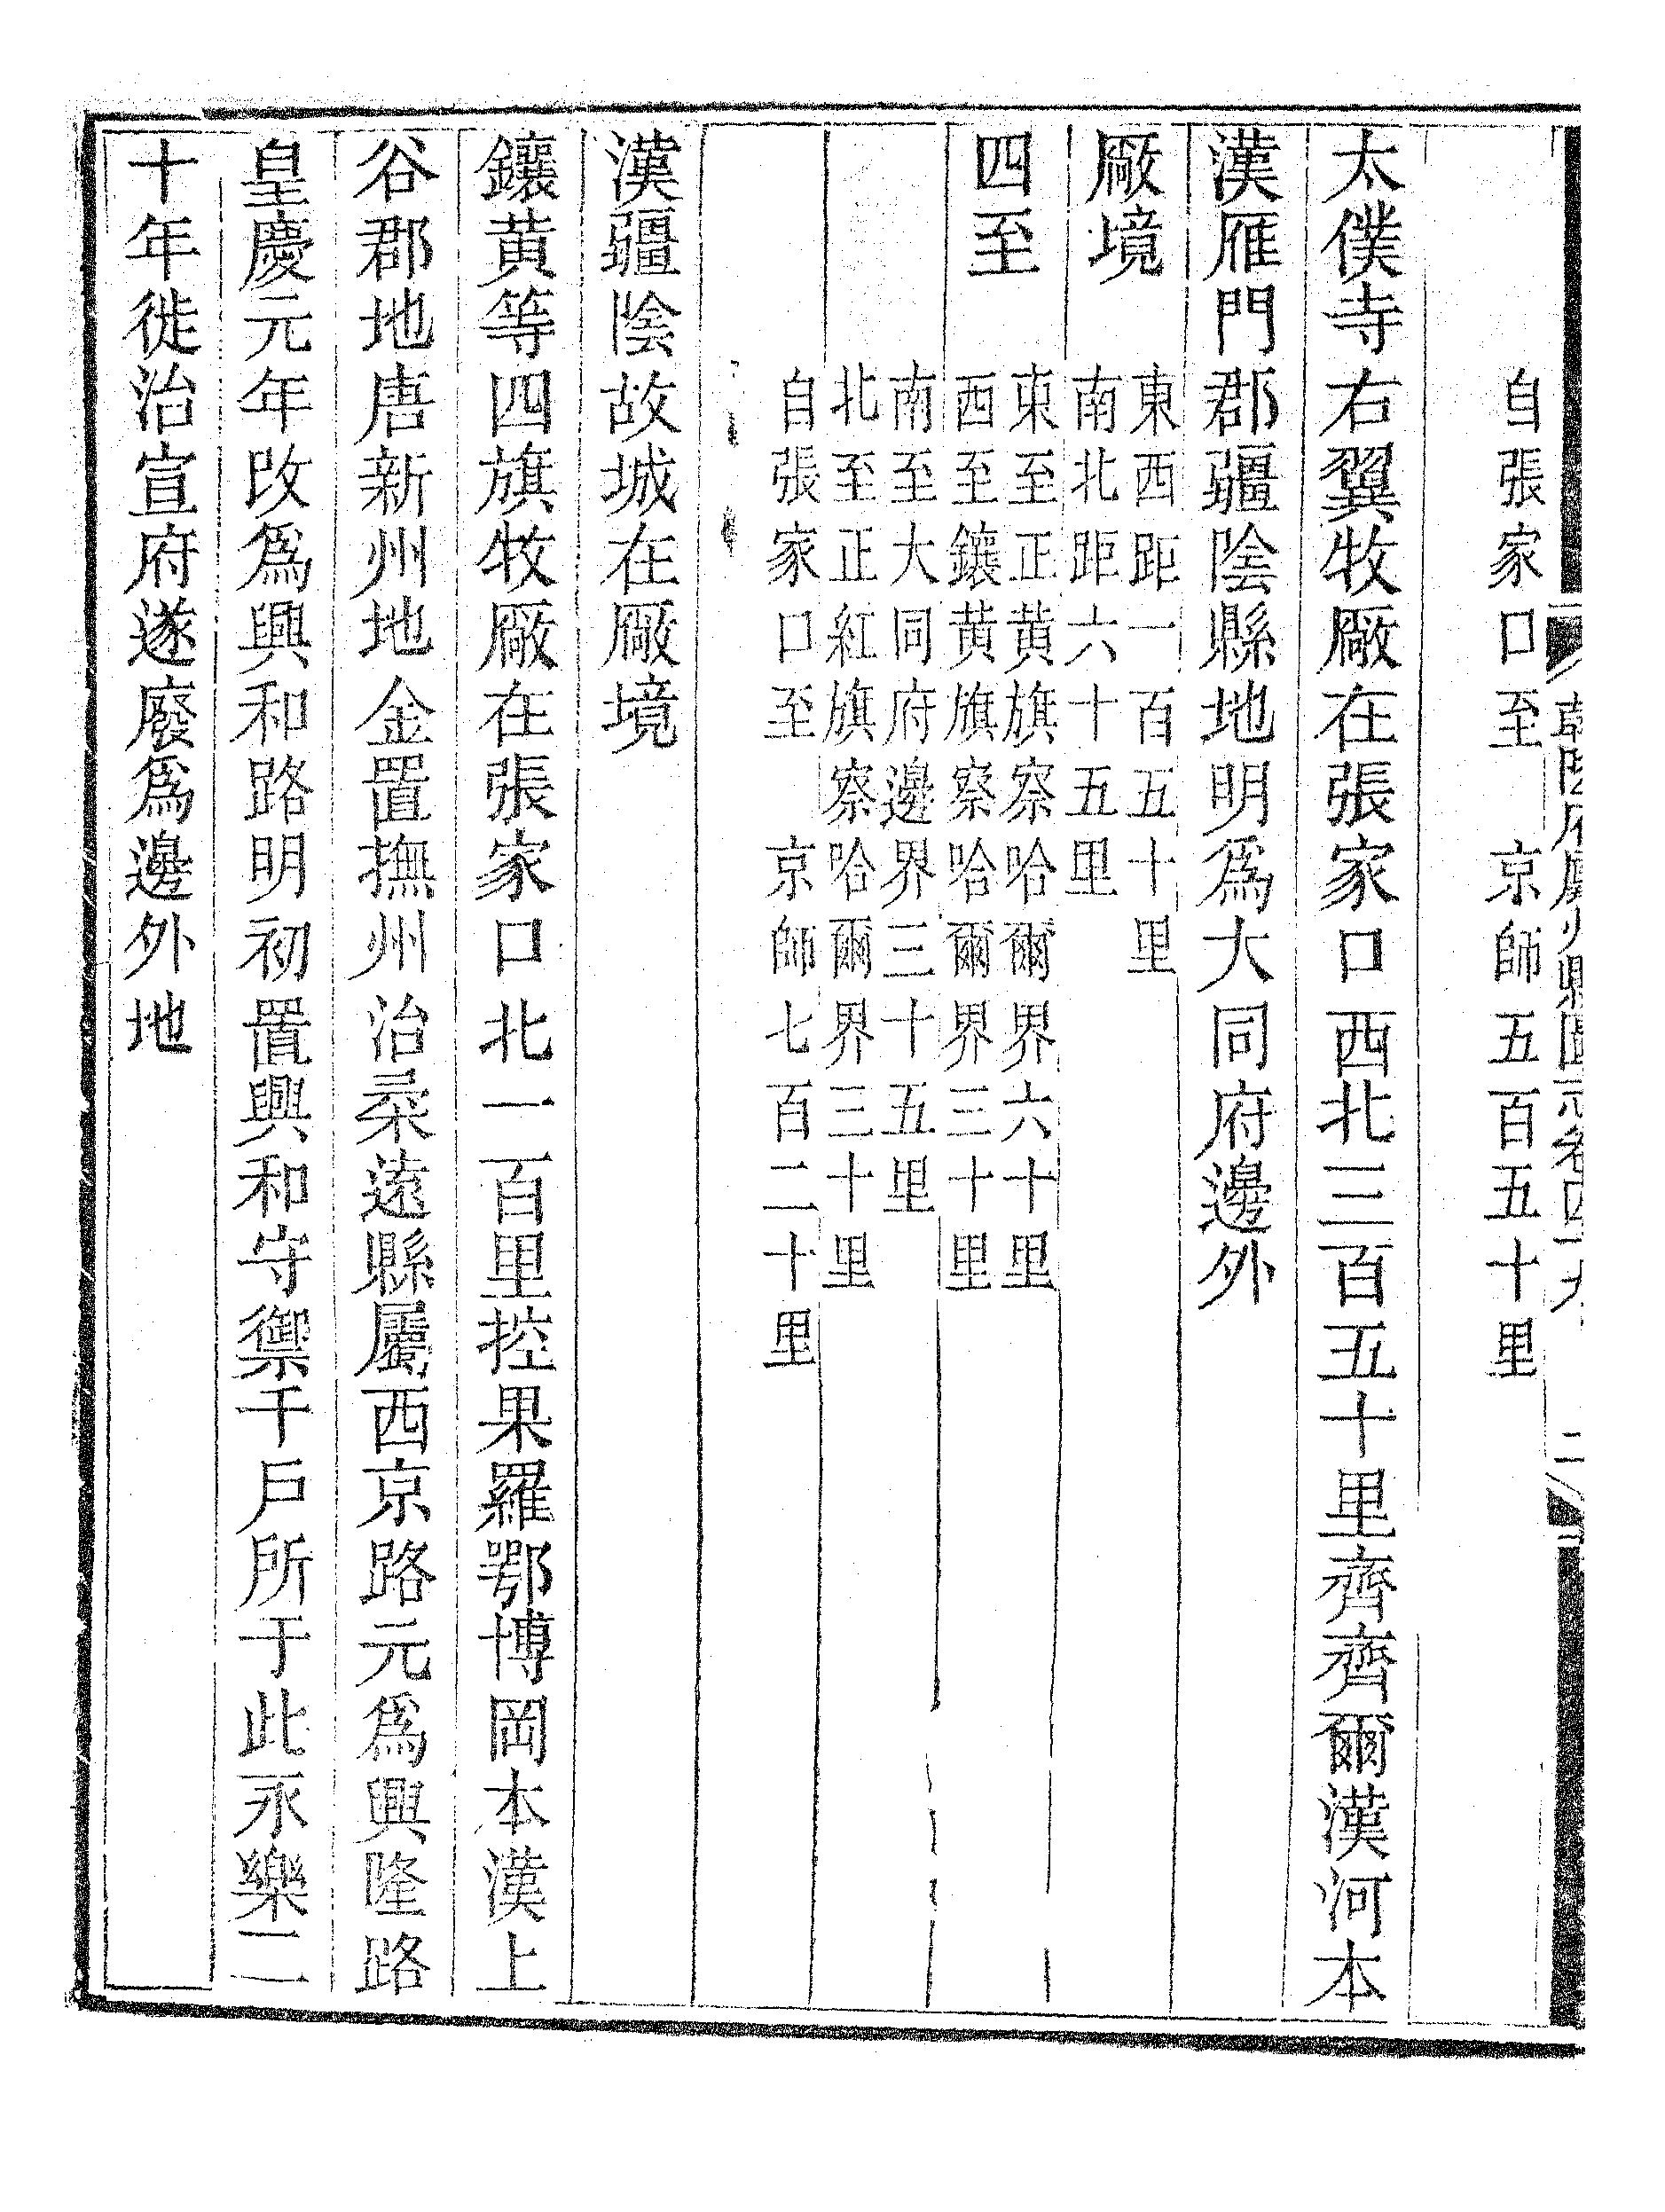 乾隆府廳州縣圖志卷四 二
自張家口至 京師五百五十里
太僕寺右翼牧廠在張家口西北三百五十里齊齊爾漢河本
漢雁門郡疆陰縣地明爲大同府邊外
廠境
東西距一百五十里
南北距六十五里
四至
東至正黃旗察哈爾界六十里
西至鑲黃旗察哈爾界三十里
南至大同府邊界三十五里
北至正紅旗察哈爾界三十里
自張家口至 京師七百二十里
漢疆陰故城在廠境
鑲黃等四旗牧廠在張家口北一百里控果羅鄂博岡本漢上
谷郡地唐新州地金置撫州治柔遠縣屬西京路元爲興隆路
皇慶元年改爲興和路明初置興和守禦千戶所于此永樂二
十年徙治宣府遂廢爲邊外地